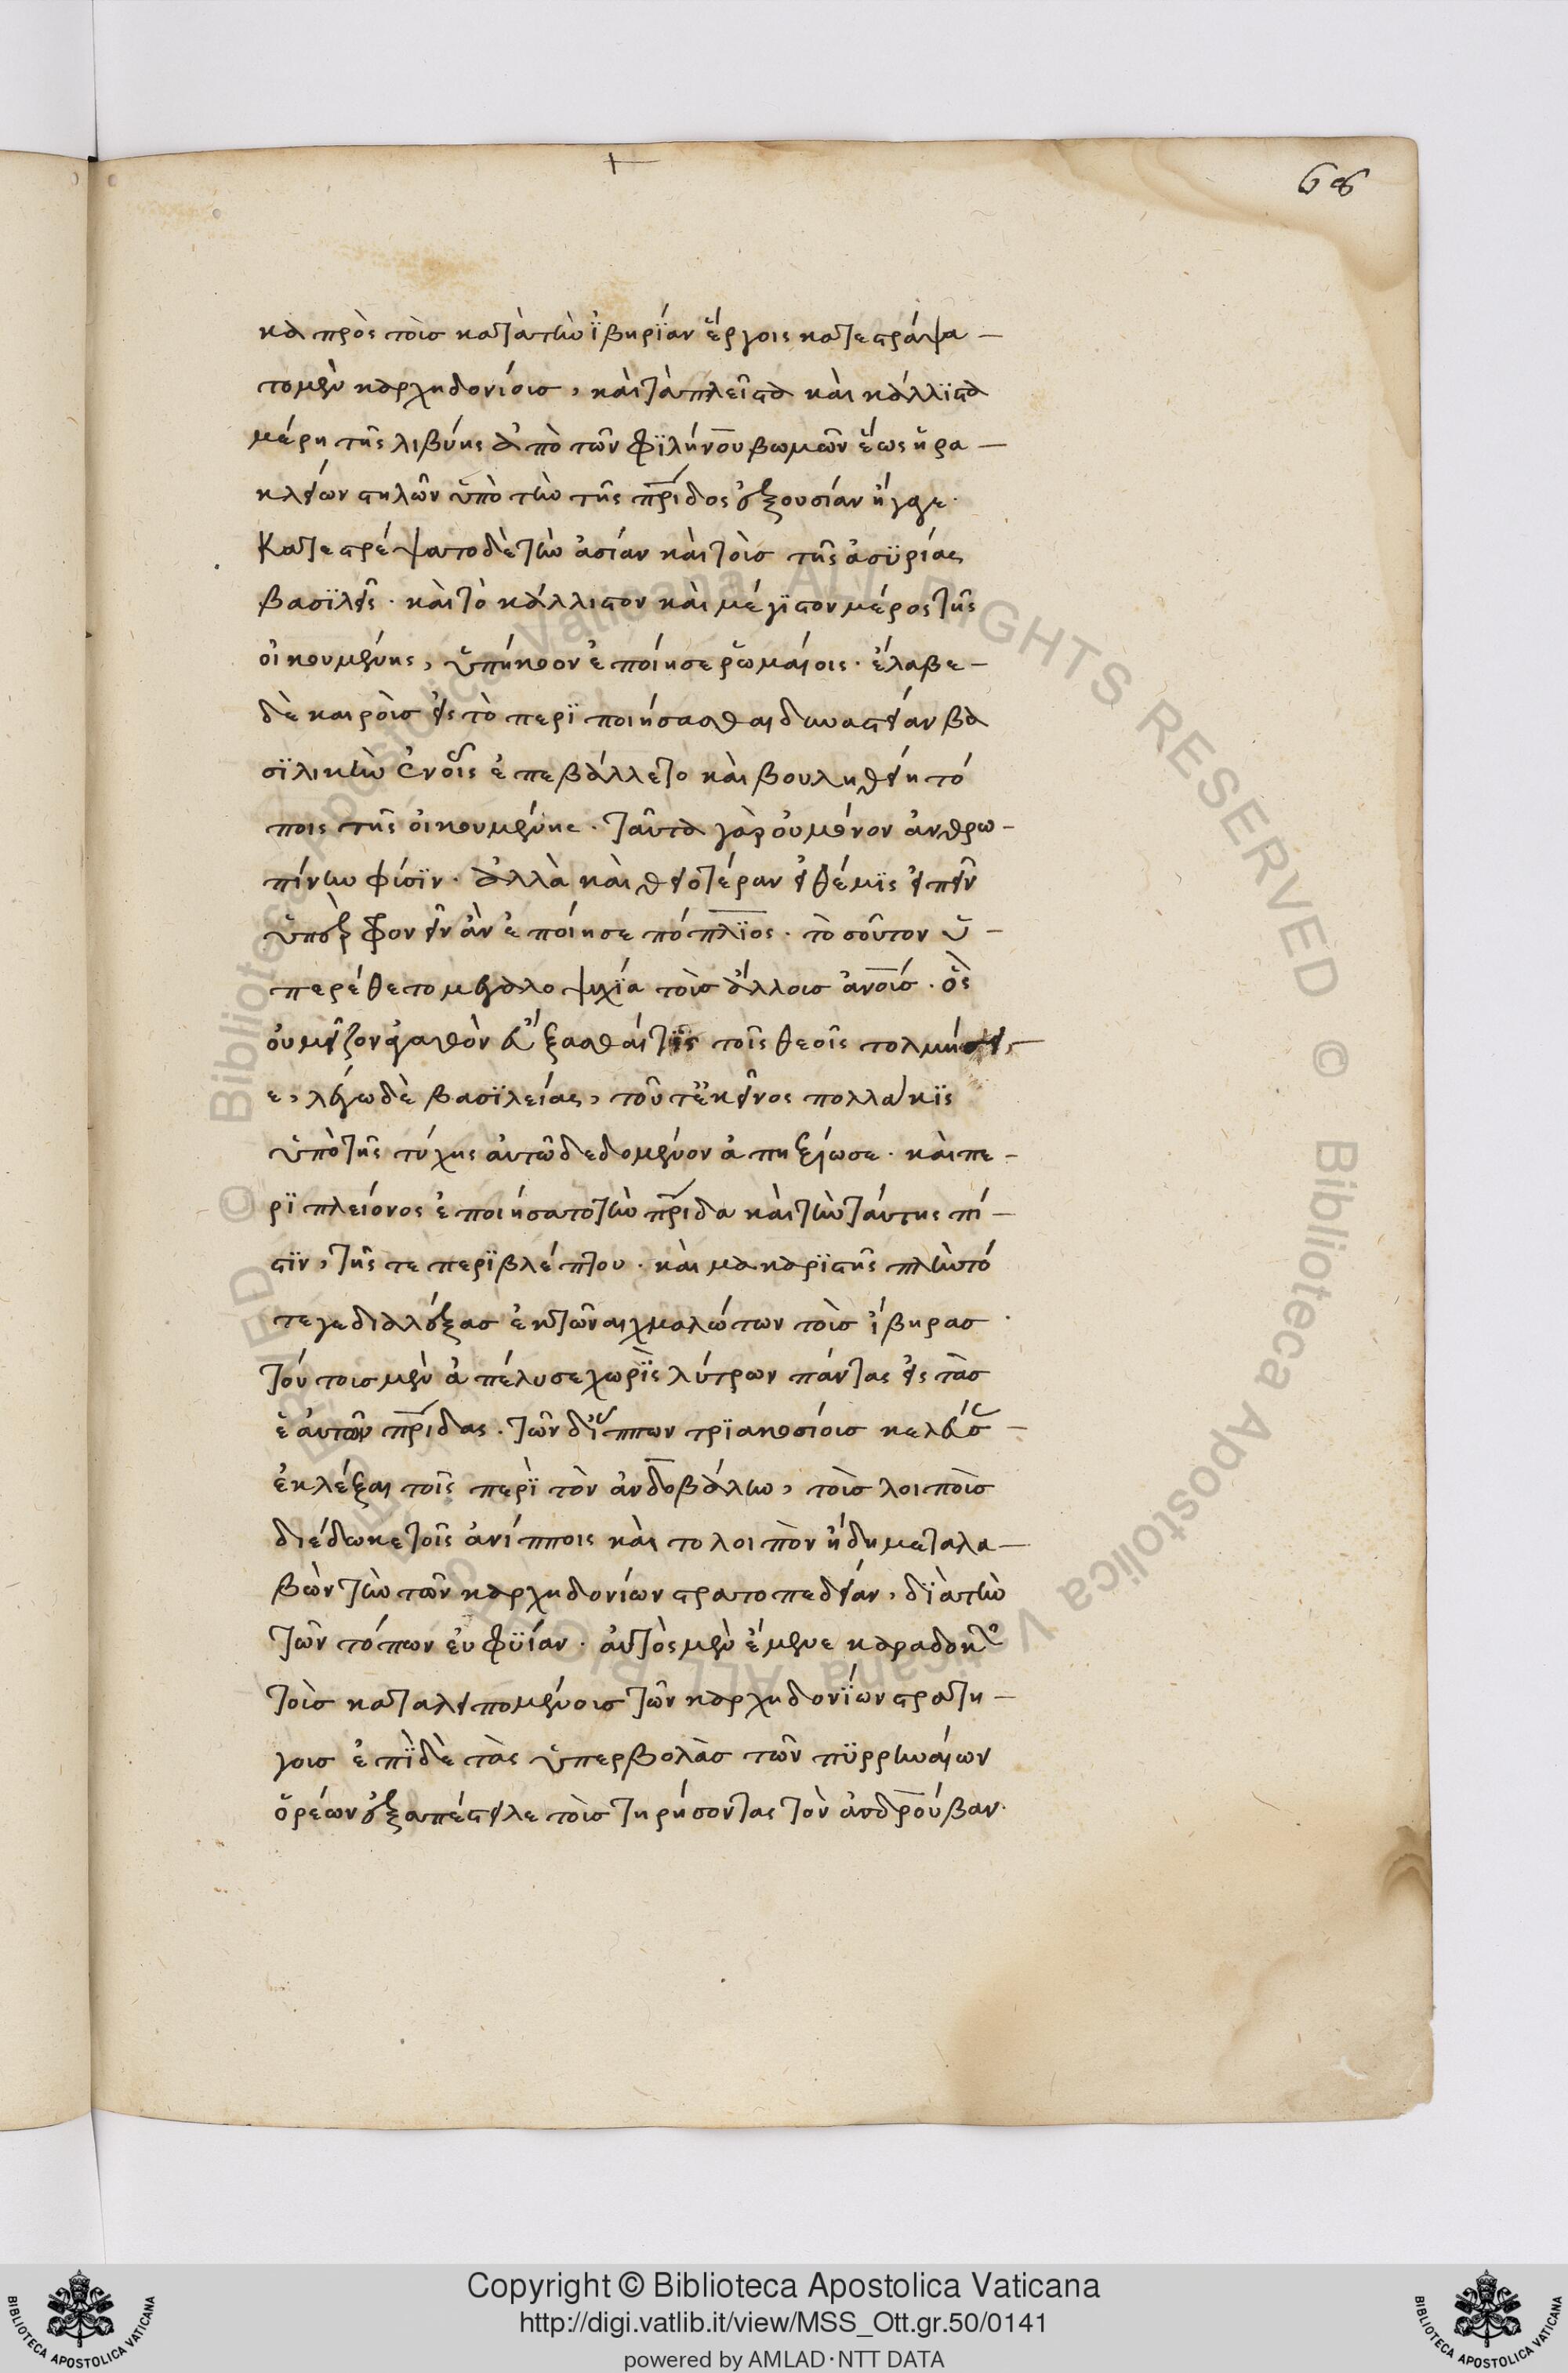 68
κα πρὸς τοῖσ κατὰ τὴν ἰβηρίαν ἔργοις κατεστράψα –
το μὲν καρχηδονίοισ, καὶ τὰ πλεῖστα καὶ κάλλιστα
μέρη τῆς λιβύης ἀπὸ τῶν φιλήνου βωμῶν ἕως ἡρα –
κλείων στηλῶν ὑπὸ τὴν τῆς πρίδος ἐξουσίαν ἤγαγε.
Κατεστρέψατο δὲ τὴν ἀσίαν καὶ τοὺσ τῆς ἀσυρίας
βασιλεῖς. καὶ τὸ κάλλιστον καὶ μέγιστον μέρος τῆς
οἰκουμένης, ὑπήκοον ἐποίησε ῥωμαίοις. ἔλαβε –
δὲ καιροὺσ εἰς τὸ περιποιήσασθαι δυναστείαν βα
σιλικὴν ἐν οἷς ἐπεβάλλετο καὶ βουληθείη τό
ποις τῆς οἰκουμένης. ταῦτα γὰρ οὐ μόνον ἀνθρω –
πίνην φύσιν. ἀλλὰ καὶ θειοτέραν εἰ θέμις εἰπεῖν
ὑπερφονεῖν ἂν ἐποίησε πόπλιος. τοσοῦτον ὑ –
περέθετο μεγαλοψυχία τοὺσ ἄλλουσ ἀνους. ὃς
οὐ μεῖζον ἀγαθὸν εὔξασθαί τις τοῖς θεοῖς τολμήσει –
ε, λέγω δὲ βασιλείας, τοῦτ ἐκεῖνος πολλάκις
ὑπὸ τῆς τύχης αὐτῶ δεδομένον ἀπηξίωσε. καὶ πε –
ρὶ πλείονος ἐποιήσατο τὴν πρίδα καὶ τὴν ταύτης πί –
στιν, τῆς τε περιβλέπτου. καὶ μακαριστῆς πλὴν τό
τε γε διαλέξας ἐκ τῶν αἰχμαλώτων τοὺσ ἴβηρασ
τούτουσ μὲν ἀπέλυσε χωρὶς λύτρων πάντας εἰς τὰσ
ἑαυτῶν πρίδας. τῶν δ' ἵππων τριακοσίουσ κελεύσ –
ἐκλέξαι τοῖς περὶ τὸν ἀνδοβάλην, τοὺσ λοιποὺσ
διέδωκε τοῖς ἀνίπποις καὶ το λοιπὸν ἤδη μεταλα –
βὼν τὴν τῶν καρχηδονίων στρατοπεδείαν, διὰ τὴν
τῶν τόπων εὐφυΐαν. αὐτὸς μὲν ἔμενε καραδοκῶ
τοὺσ καταλειπομένουσ τῶν καρχηδονίων στρατη –
γουσ ἐπὶ δὲ τὰς ὑπερβολὰσ τῶν πυρρηναίων
ὀρέων ἐξαπέστειλε τοὺσ τηρήσοντας τὸν ἀσδρούβαν.
Copyright © Biblioteca Apostolica Vaticana
http://digi.vatlib.it/view/MSS_Ott.gr.50/0141
powered by AMLAD·NTT DATA
BIBLIOTECA APOSTOLICA VATICANA
BIBLIOTECA APOSTOLICA VATICANA
© Biblioteca Apostolica Vaticana ALL RIGHTS RESERVED
© Biblioteca Apostolica Vaticana ALL RIGHTS RESERVED